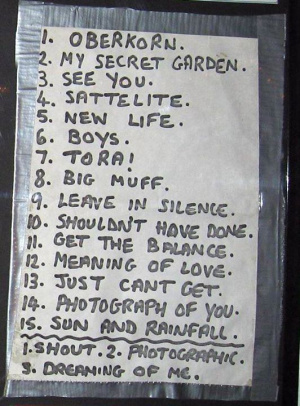 1. OBERKORN.
2. MY SECRET GARDEN.
3. SEE YOU.
4. SATTELITE.
5. NEW LIFE.
6. BOYS.
7. TORA!
8. BIG MUFF.
9. LEAVE IN SILENCE.
10. SHOULDN'T HAVE DONE.
11. GET THE BALANCE.
12. MEANING OF LOVE.
13. JUST CANT GET.
14. PHOTOGRAPH OF YOU.
15. SUN AND RAINFALL.
1. SHOUT. 2. PHOTOGRAPHIC.
3. DREAMING OF ME.